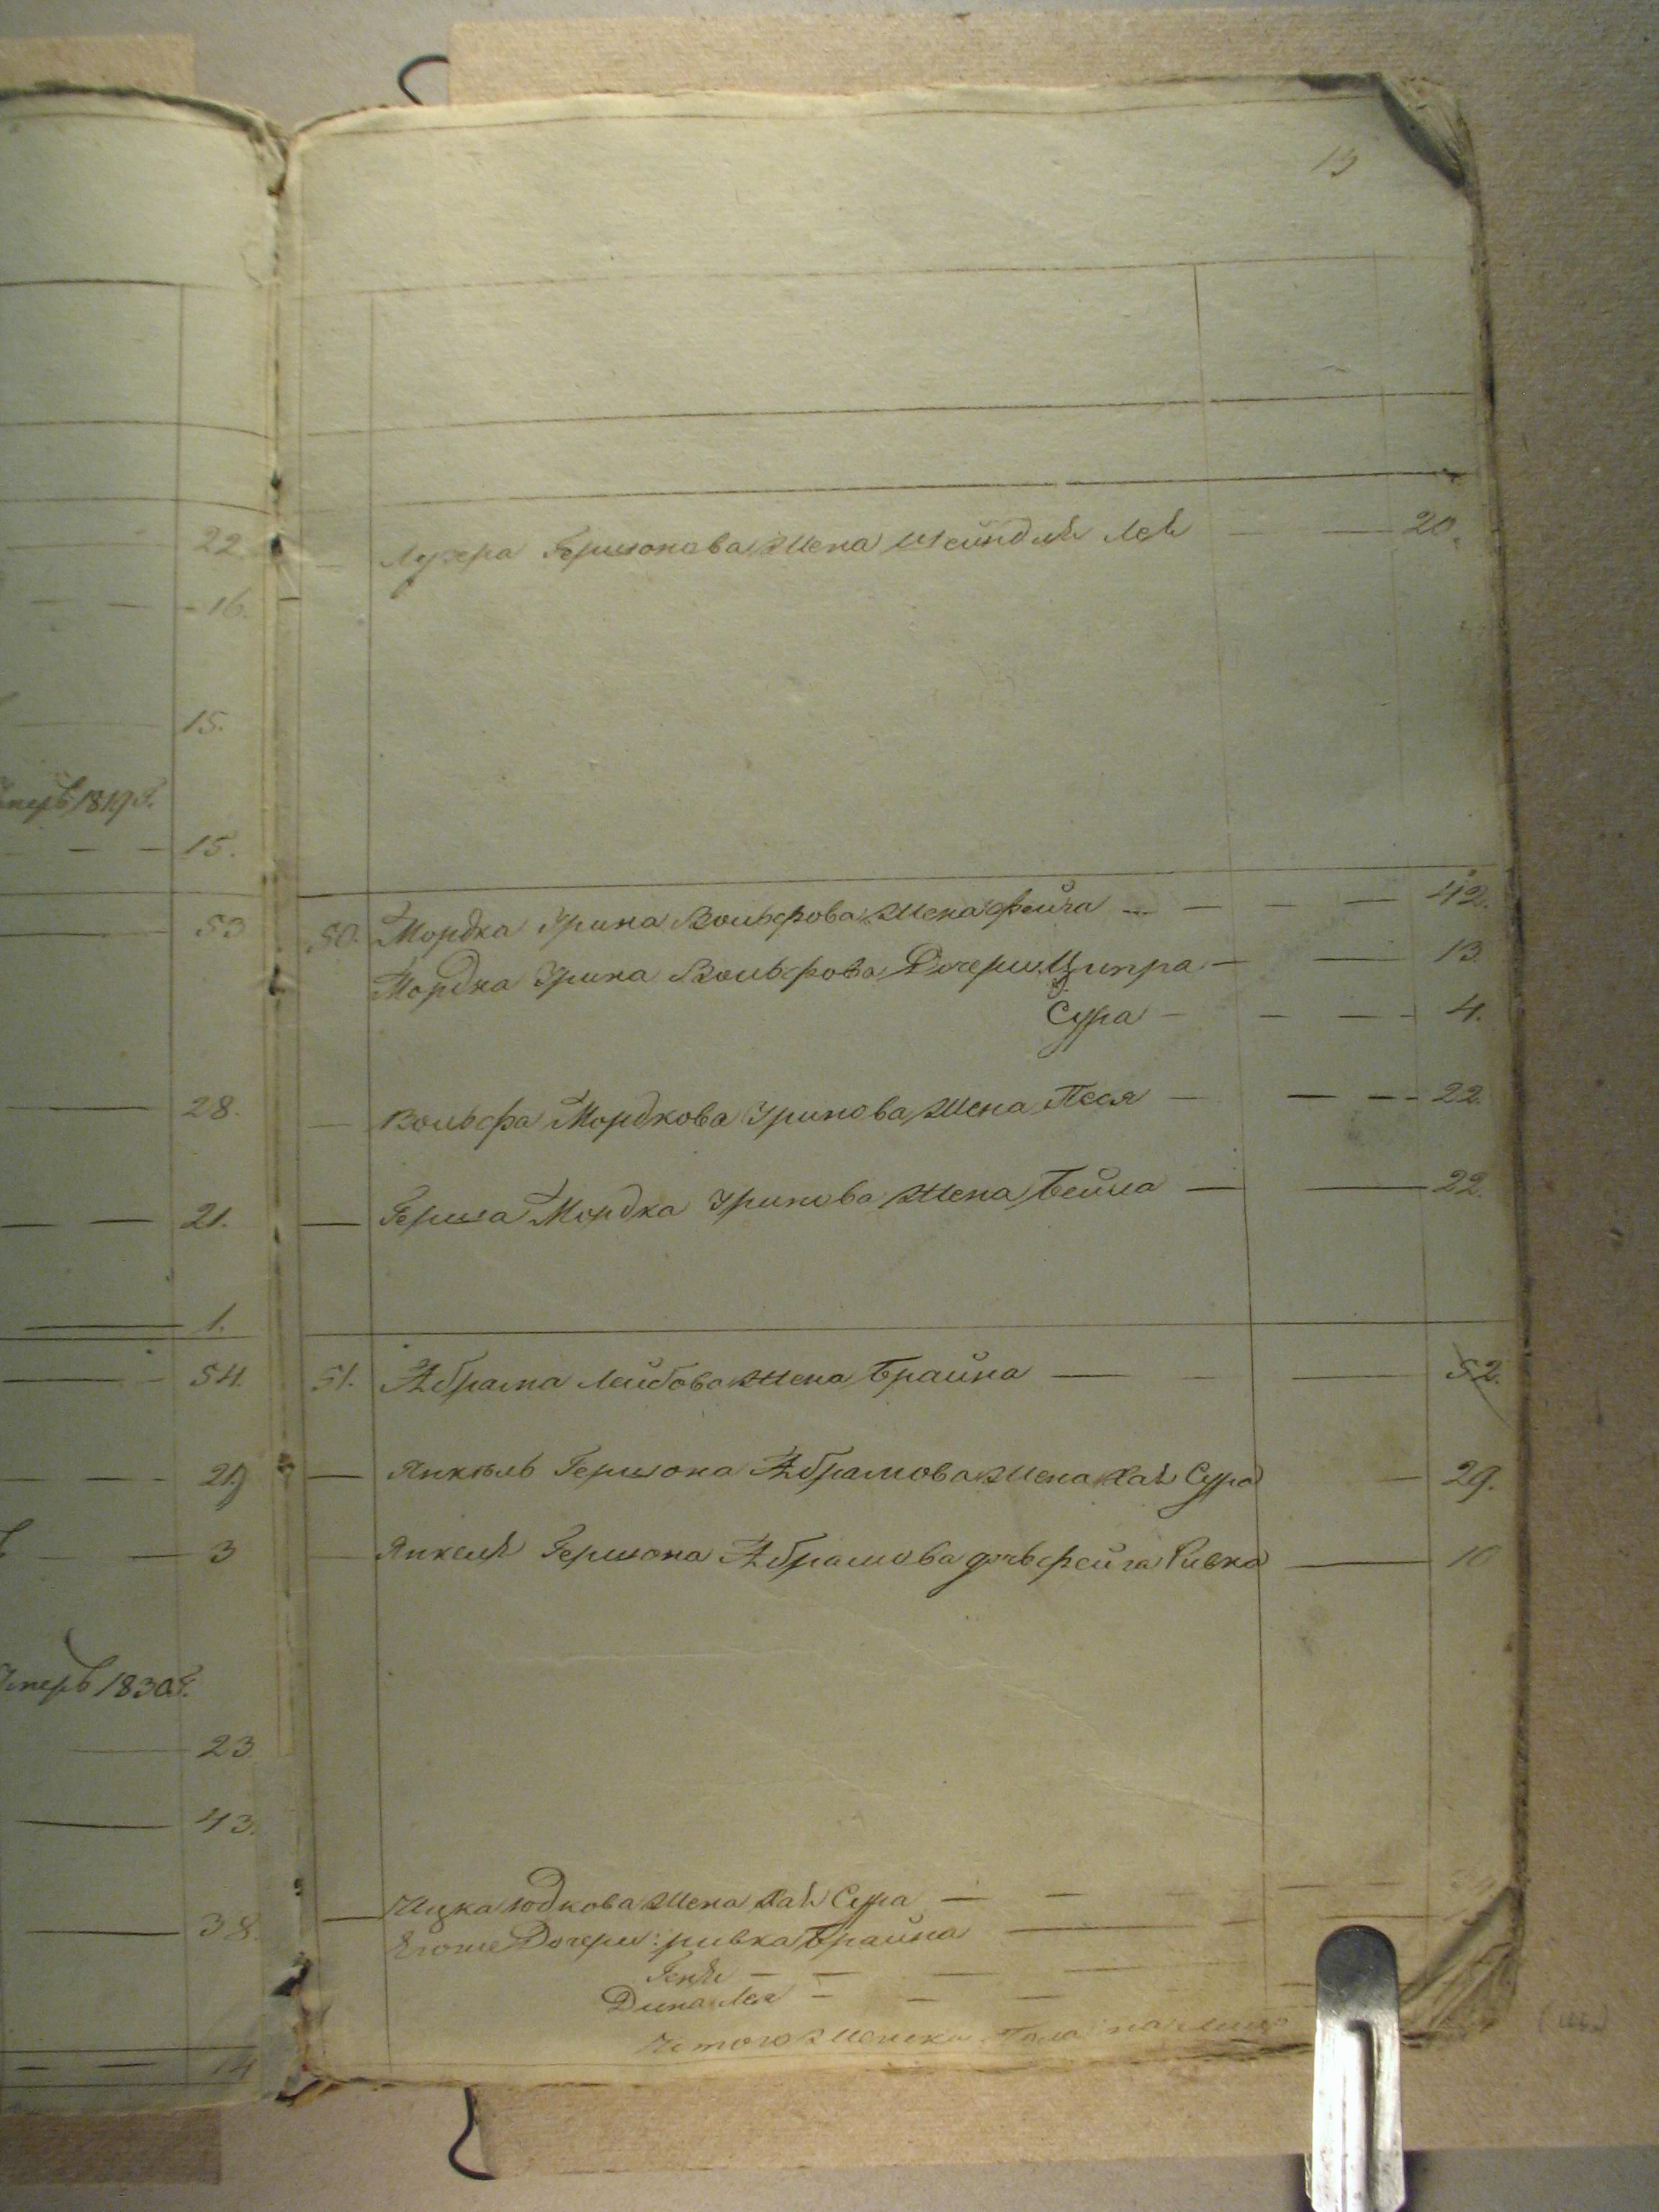 22.
- 16.
15.
1819 г.
15.
53
28.
21.
1.
54.
29
3
1830 г.
23
43.
38.
14
13
Лузера Гершонова жена Шейндля Лея 20.
50. Мордка Урина Вольфова жена Фейга 42.
Мордка Урина Вольфова Дочери. Ципра 13.
Сура 4.
Вольфа Мордкова Уринова жена Песя 22.
Герша Мордка Уринова жена Бейла 22.
51. Абрама Лейбова жена Брайна 52.
Янкель Гершона Абрамова жена Хая Сура 29.
Янкеля Гершона Абрамова дочь Фейга Ривка 10
Ицка Юдкова жена Хая Сура
Егоже Дочери: Ривка Брайна
Геня
Дина Лея
Итого женска Пола на лицо